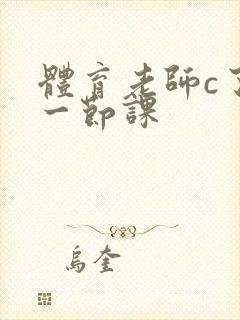 體育老師c了
一節課
烏奎